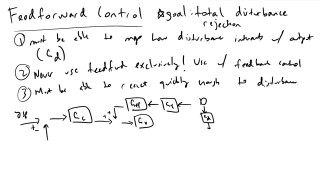 Feedforward Control goal: total disturbance
rejection
① must be able to map how disturbance interacts w/ output
(Gd)
② Never use feedforward exclusively! Use w/ feedback control
③ Must be able to react quickly enough to disturbance
Gff Gt D
Gc Gd
+-
++